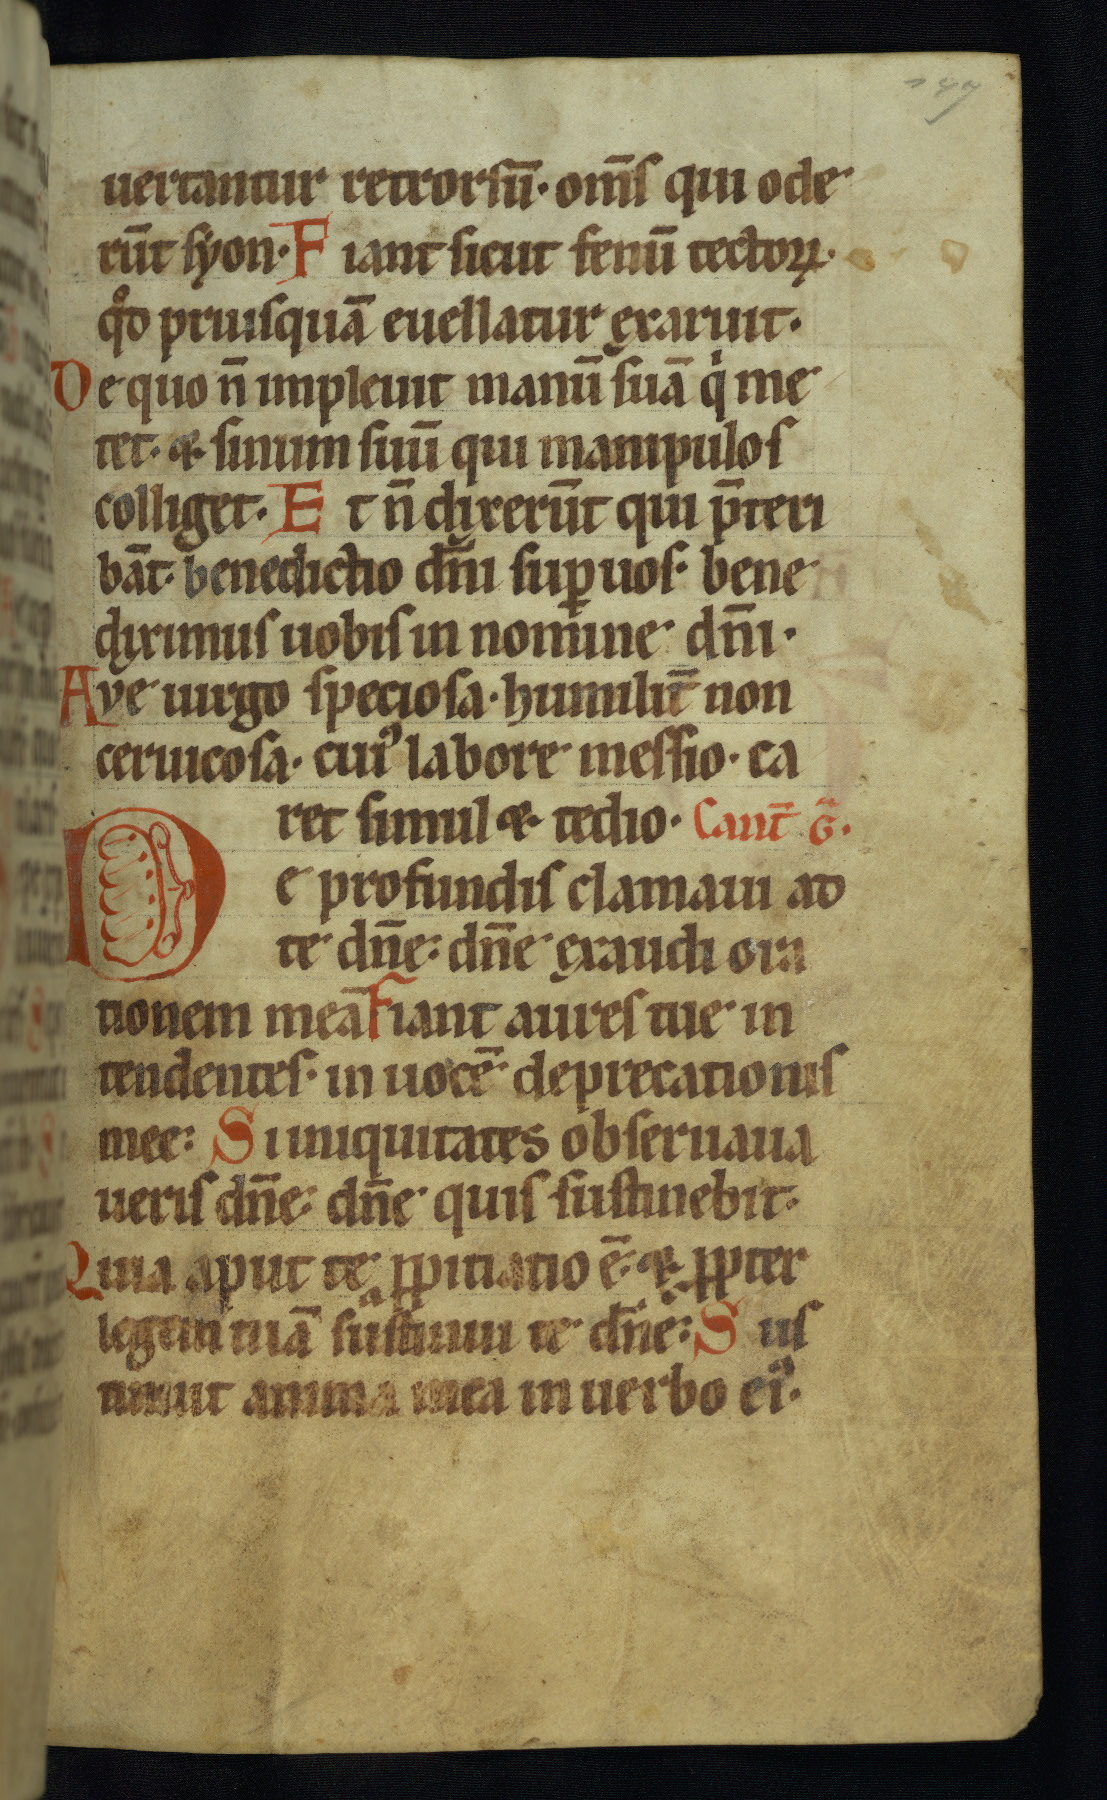 247
uertantur retrorsū· om̄s qui ode
rūt syon· Fiant sicut fenū tectoꝝ·
qͦd priusquā euellatur exaruit·
De quo n̄ impleuit manū suā qͥ me
tet· ⁊ sinum suū qui manipulos
colliget· Et n̄ dixerūt qui p̄teri
bāt· benedictio dn̄i suꝑ uos· bene
diximus uobis in nomine dn̄i·
Aue uirgo speciosa· humilit̄ non
ceruicosa· cuiꝰ labore messio· ca
ret simul ⁊ tedio· Cant̄ G̃·
De profundis clamaui ad
te dn̄e: dn̄e exaudi ora
tionem meā Fiant aures tue in
tendentes· in uocē deprecationis
mee: Si iniquitates obseruaua
ueris dn̄e: dn̄e quis sustinebit·
Quia aput te ꝓpitiatio ē· ⁊ ꝓpter
legem tuā sustinui te dn̄e: Sus
tinuit anima mea in uerbo eiꝰ·